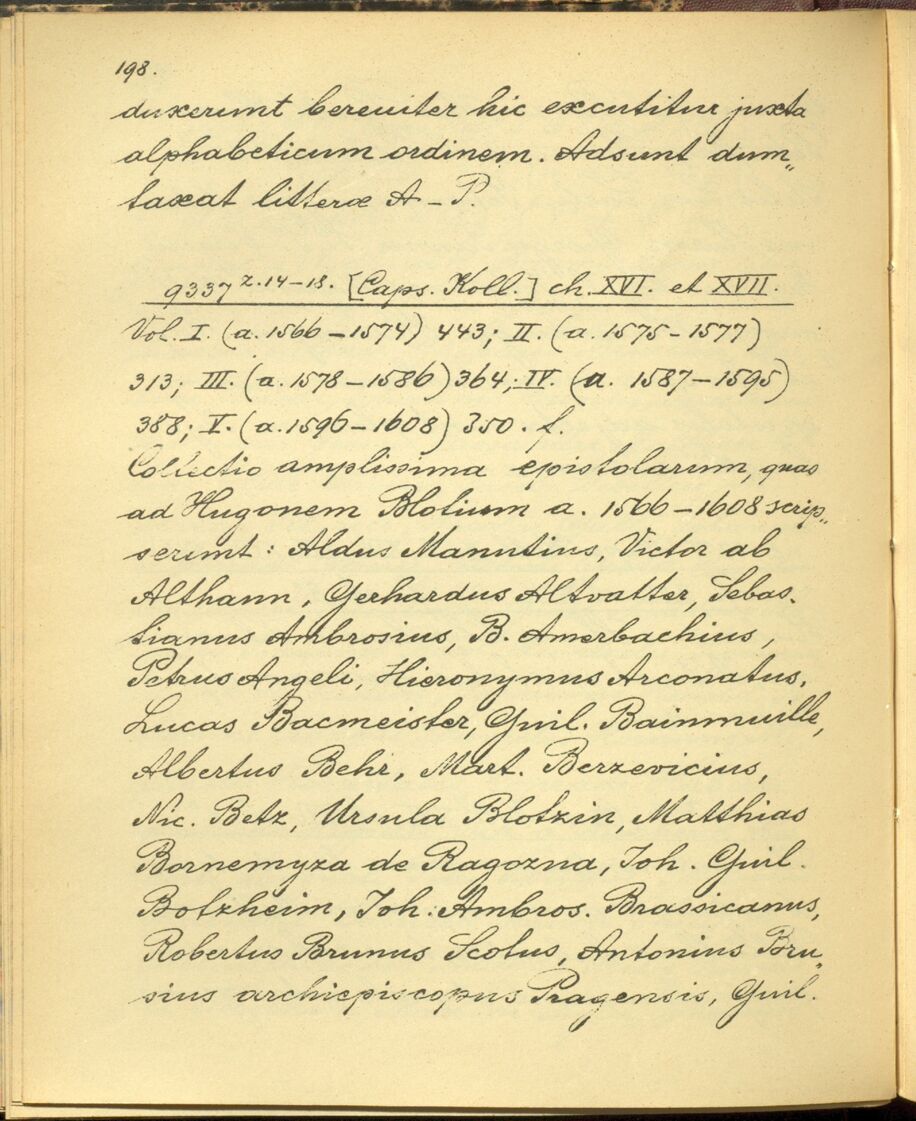 198.
duxerunt bereviter hic excutitur juxta
alphabeticum ordinem. Adsunt dum„
taxat litteræ A – P.
9337 z. 14–18. [Caps. Koll.] ch. XVI. et XVII.
Vol. I. (a. 1566 – 1574) 443; II. (a. 1575 – 1577)
313; III. (a. 1578 – 1586) 364; IV. (a. 1587 – 1595)
388; V. (a. 1596 – 1608) 350. f.
Collectio amplissima epistolarum, quas
ad Hugonem Blotium a. 1566 – 1608 scrip„
serunt : Aldus Manutius, Victor ab
Althann, Gerhardus Altvatter, Sebas„
tianus Ambrosius, B. Amerbachius,
Petrus Angeli, Hieronymus Arconatus,
Lucas Bacmeister, Guil. Bainmuille,
Albertus Behr, Mart. Berzevicius,
Nic. Betz, Ursula Blotzin, Matthias
Bornemyza de Ragozna, Joh. Guil.
Botzheim, Joh. Ambros. Brassicanus,
Robertus Brunus Scotus, Antonius Bru„
sius archiepiscopus Pragensis, Guil.